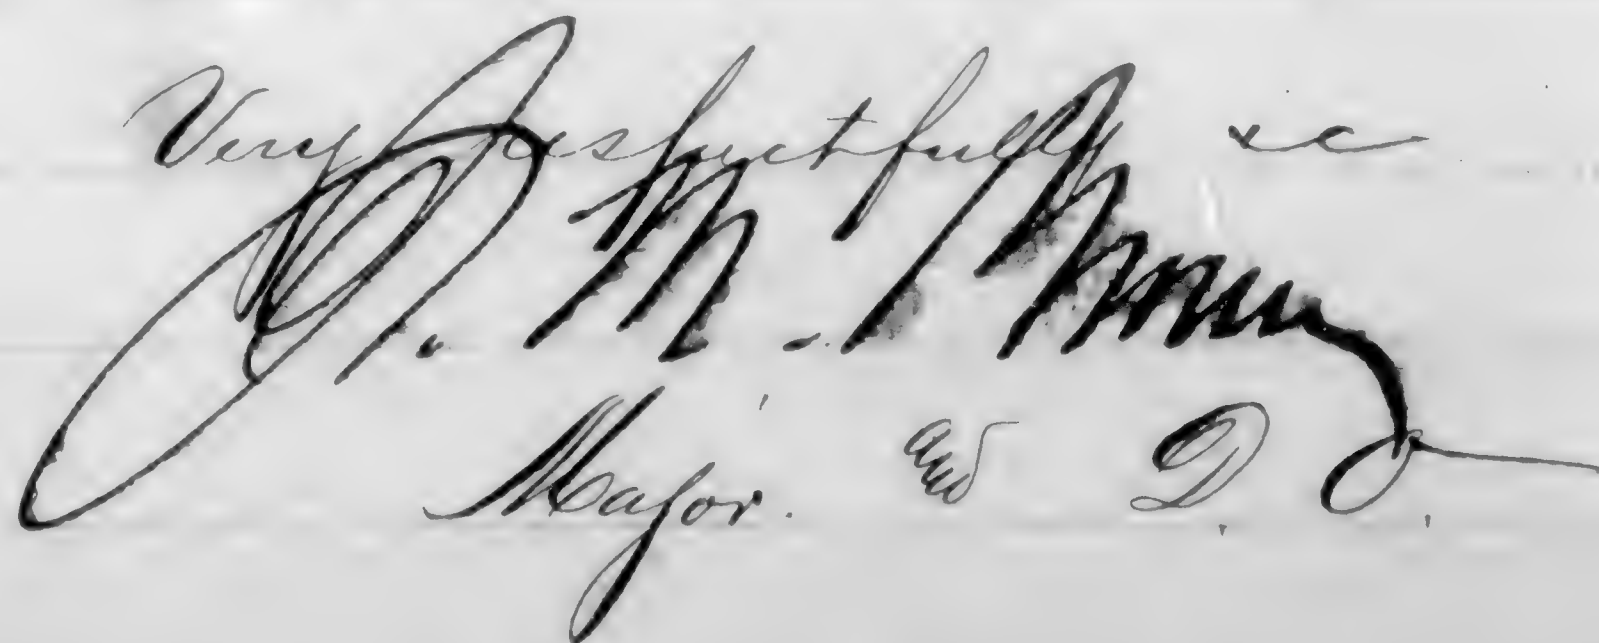 Very respectfully &c
M.
Major. and D. O.